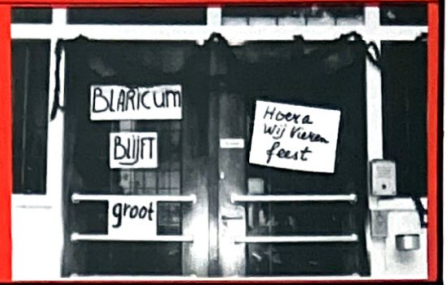 BLARICUM
BLIJFT
groot
Hoera
wij vieren
feest